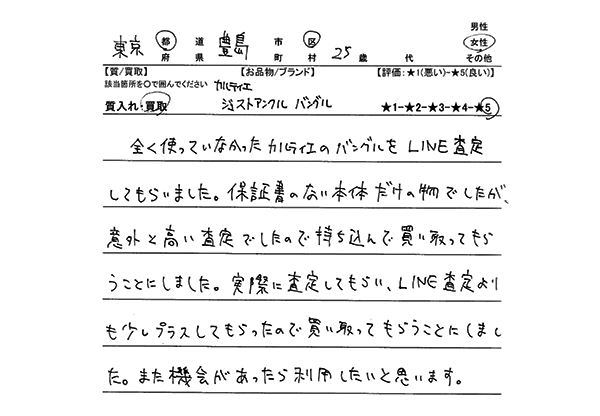 男性
東京 都 道 豊島 市 区 25 女性
府 県 町 村 歳 代 その他
【質/買取】 【お品物/ブランド】 【評価:★1(悪い)-★5(良い)】
該当箇所を〇で囲んでください カルティエ
質入れ・買取 ジュストアンクル バングル ★1-★2-★3-★4-★5
全く使っていなかったカルティエのバングルをLINE査定
してもらいました。保証書のない本体だけの物でしたが、
意外と高い査定でしたので持ち込んで買い取ってもら
うことにしました。実際に査定してもらい、LINE査定より
も少しプラスしてもらったので買い取ってもらうことにしまし
た。また機会があったら利用したいと思います。